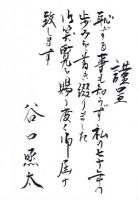 謹呈
恥ずる事も知らず私の七十年の
歩みを書き綴りました
御笑覧を賜り度く御届け
致します
谷口